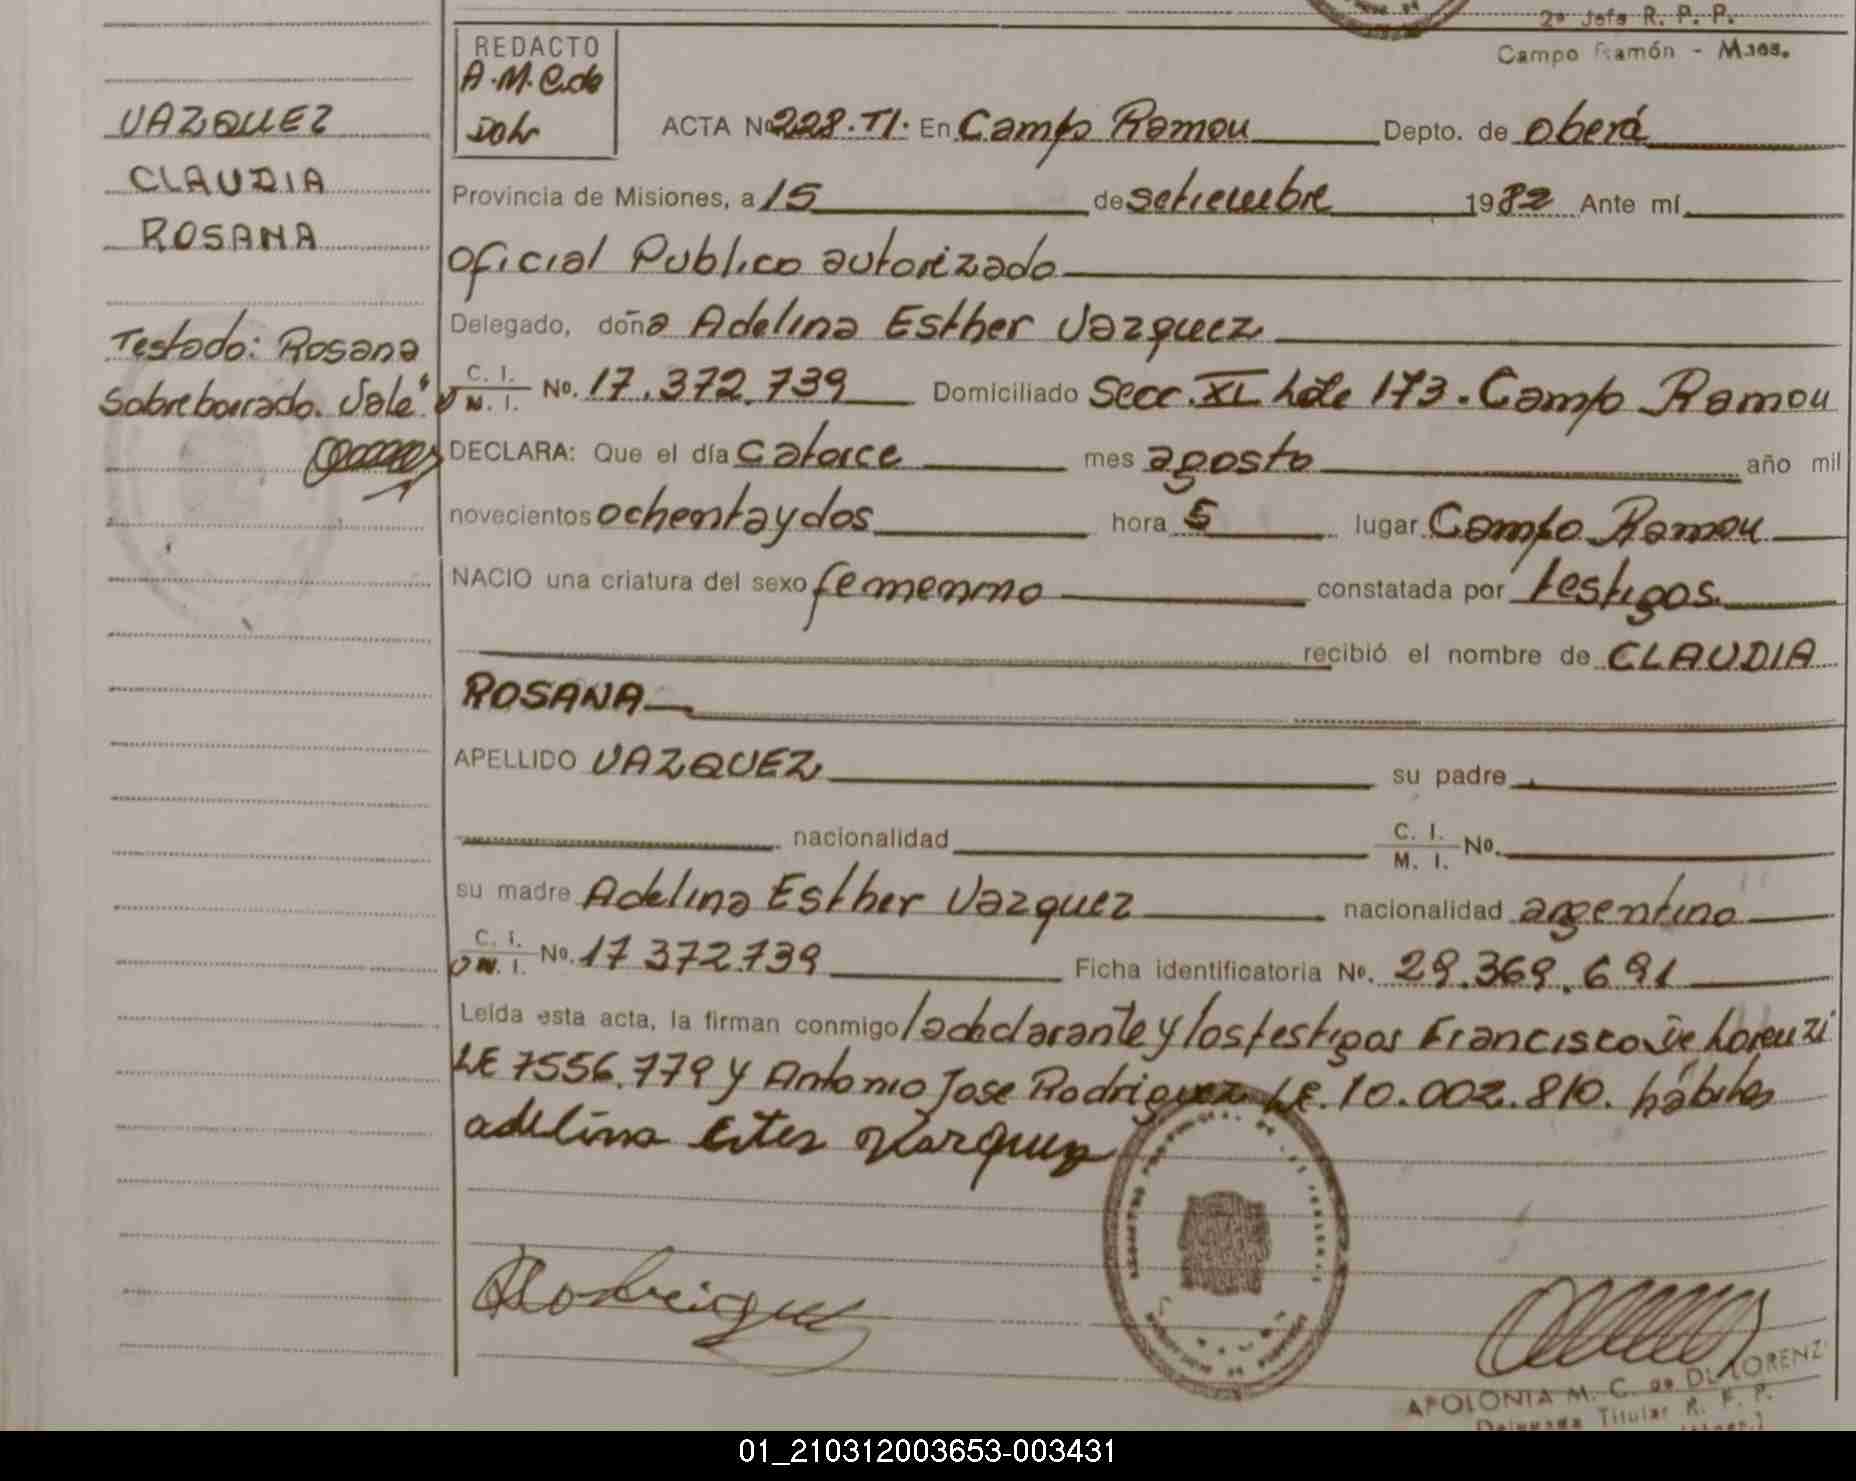 2ª Jefa R. P. P.
Campo Ramón - Mnes.
REDACTO
A.M.C.de
Doh
VAZQUEZ
CLAUDIA
ROSANA
Testado: Rosana
Sobreborrado. Vale"
ACTA Nº 228.TI. En Campo Ramon Depto. de Oberá
Provincia de Misiones, a 15 de setiembre 1982 Ante mí
oficial Publico autorizado
Delegado, doña Adelina Esther Vazquez
C. I. D N. I. No. 17.372.739 Domiciliado Secc. XI Lote 173. Campo Ramon
DECLARA: Que el día catorce mes agosto año mil
novecientos ochentaydos hora 5 lugar Campo Ramon
NACIO una criatura del sexo femenino constatada por testigos.
recibió el nombre de CLAUDIA
ROSANA
APELLIDO VAZQUEZ su padre
nacionalidad C. I. M. I. No.
su madre Adelina Esther Vazquez nacionalidad argentina
C. I. D N. I. No. 17 372.739 Ficha identificatoria No. 29.369.691
Leída esta acta, la firman conmigo la declarante y los testigos Francisco De Lorenzi
LE 7556.779 y Antonio Jose Rodriguez LE. 10.002.810. hábiles
adelina ester Vazquez
Rodriguez
APOLONIA M. C. de DI LORENZI
Delegada Titular R. P. P.